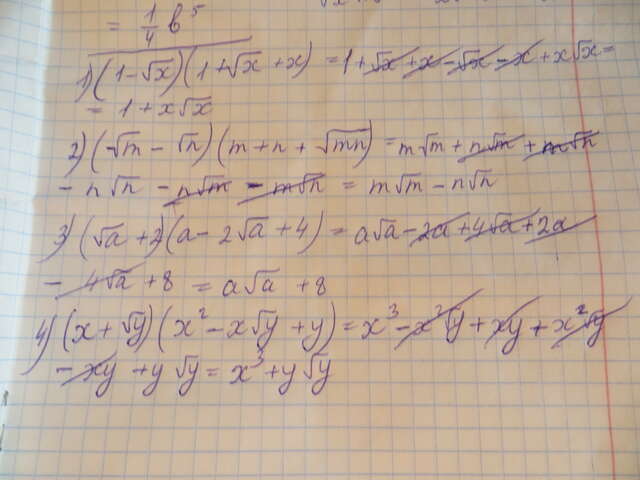 = 1/4 b⁵
1) (1-√x)(1+√x+x) = 1+√x+x-√x-x+x√x=
= 1+x√x
2) (√m - √n)(m+n+√mn) = m√m + n√m + m√n
- n√n - n√m - m√n = m√m - n√n
3) (√a+2)(a-2√a+4) = a√a-2a+4√a+2a
- 4√a +8 = a√a +8
4) (x+√y)(x²-x√y+y) = x³-x²√y+xy+x²√y
- xy + y√y = x³+y√y